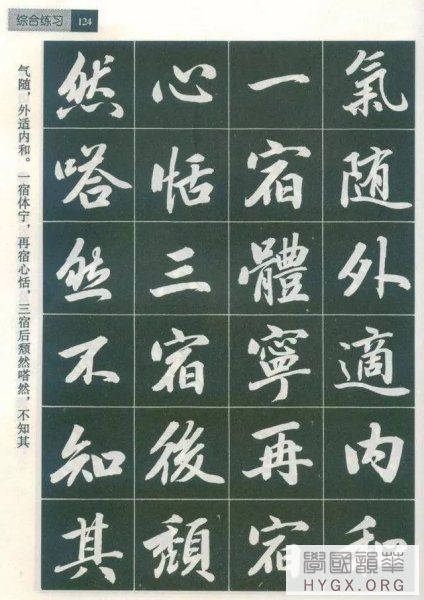 综合练习 124
氣随外適内和
一宿體寧再宿
心恬三宿後頹
然嗒然不知其
气随，外适内和。一宿体宁，再宿心恬，三宿后颓然嗒然，不知其
華韻國學
HYGX.ORG